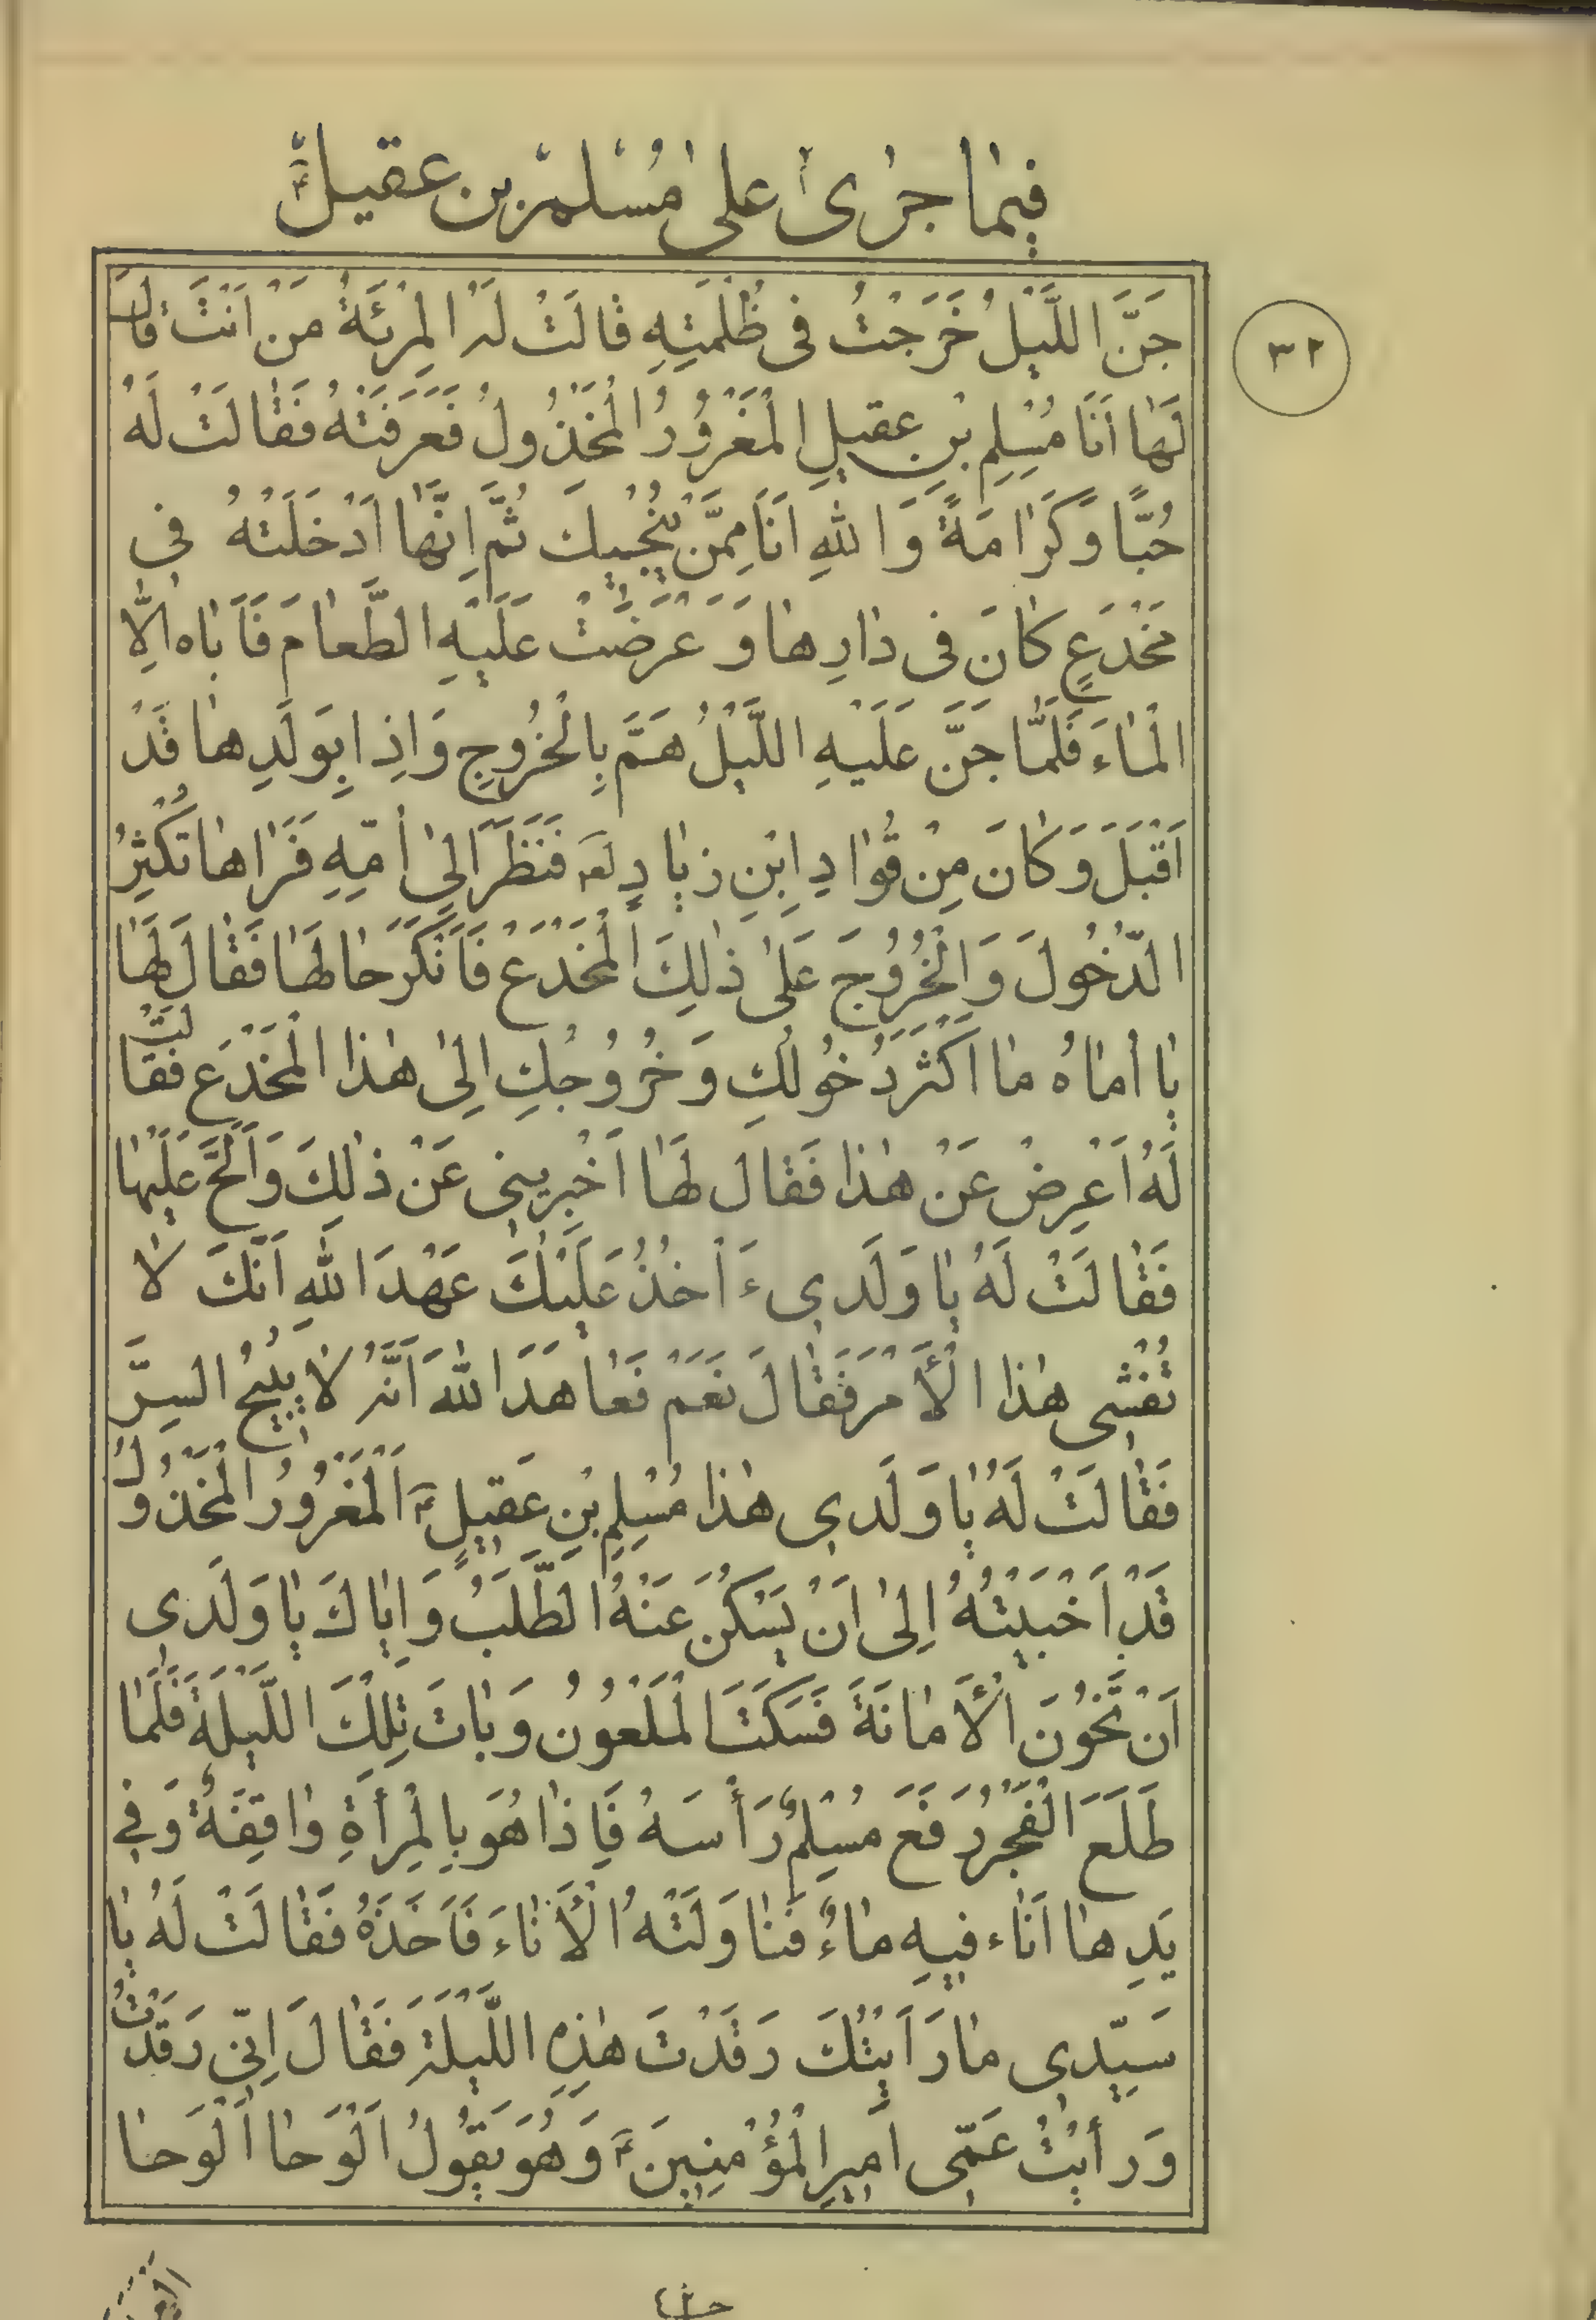 فِيمٰا جَرىٰ عَلىٰ مُسْلِمْ بن عقيلؑ
٣٢
جَنَّ اللَّيْلُ خَرَجْتُ فى ظُلْمَتِهِ قالَتْ لَهُ الْمِرْئَةُ مَنْ اَنْتَ قالَ
لَهٰا اَنَا مُسْلِمِ بْنِ عقيلِ الْمَغْرُورُ الْمَخْذُولُ فَعَرَفَتْهُ فَقٰالَتْ لَهُ
حُبّاً وَكَرٰامَةً وَاللهِ اَنَا مِمَّنْ يُنْجيكَ ثُمَّ اِنَّهٰا اَدْخَلَتْهُ فى
مَخْدَعٍ كٰانَ فى دٰارِهٰا وَعَرَضَتْ عَلَيْهِ الطَّعٰامَ فَاَبٰاه اِلاَّ
الْمٰاءَ فَلَمّٰا جَنَّ عَلَيْهِ اللَّيْلُ هَمَّ بِالْخُرُوجِ وَاِذا بِوَلَدِهٰا قَدْ
اَقْبَلَ وَكٰانَ مِنْ قُوّٰادِ ابْنِ زِيٰادٍ لعه فَنَظَرَ اِلىٰ اُمِّهِ فَرَاهٰا تُكْثِرُ
الدُّخُولَ وَالْخُرُوجَ عَلىٰ ذٰلِكَ الْمَخْدَع فَاَنْكَرَ حٰالَهٰا فَقٰالَ لَهٰا
يٰا اُمّٰاهُ مٰا اَكْثَرَ دُخُولُكِ وَخُرُوجُكِ اِلىٰ هٰذَا الْمَخْدَعِ فَقٰالَتْ
لَهُ اَعْرِضْ عَنْ هٰذا فَقٰالَ لَهٰا اَخْبِرينى عَنْ ذٰلِكَ وَاَلَحَّ عَلَيْهٰا
فَقٰالَتْ لَهُ يٰا وَلَدى ءَ اٰخُذُ عَلَيْكَ عَهْدَ اللهِ اَنَّكَ لاٰ
تُفْشى هٰذَا الْأَمْرَ فَقٰالَ نَعَمْ فَعٰاهَدَ اللهَ اَنَّهُ لاٰ يُبيحُ السِرَّ
فَقٰالَتْ لَهُ يٰا وَلَدى هٰذا مُسْلِمِ بْنِ عَقيلٍؑ اَلْمَغْرُورُ الْمَخْذُولُ
قَدْ اَخْبَيْتُهُ اِلىٰ اَنْ يَسْكُنَ عَنْهُ الطَّلَبُ وَاِيّٰاكَ يٰا وَلَدى
اَنْ تَخُونَ الْأَمٰانَةَ فَسَكَتَ الْمَلْعُون وَبٰاتَ تِلْكَ اللَّيْلَةَ فَلَمّٰا
طَلَعَ الْفَجْرُ رَفَعَ مُسْلِمٌؑ رَأْسَهُ فَاِذٰا هُوَ بِالْمِرْأَةِ وٰاقِفَةٌ وَفى
يَدِهٰا اِنٰاء فيهِ مٰاءٌ فَنٰاوَلَتْهُ الْأِنٰاءَ فَاَخَذَهُ فَقٰالَتْ لَهُ يٰا
سَيِّدى مٰا رَاَيْتُكَ رَقَدْتَ هٰذِهِ اللَّيْلَةَ فَقٰالَ اِنّى رَقَدْتُ
وَرَأَيْتُ عَمّى اَميرِ الْمُؤْمِنينَؑ وَهُوَ يَقُولُ اَلْوَحٰا اَلْوَحٰا